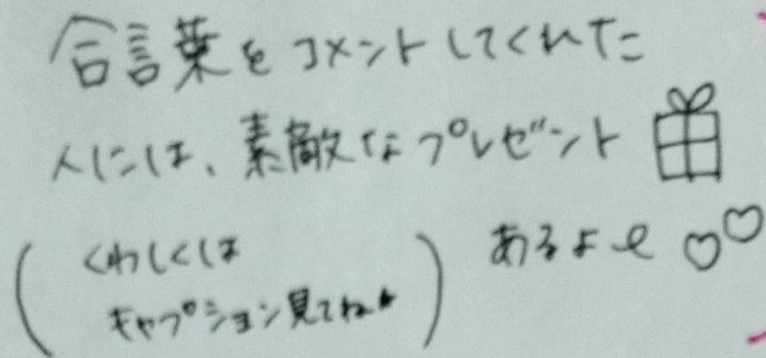 合言葉をコメントしてくれた
人には、素敵なプレゼント
あるよ♡♡
(くわしくは
キャプション見てね)